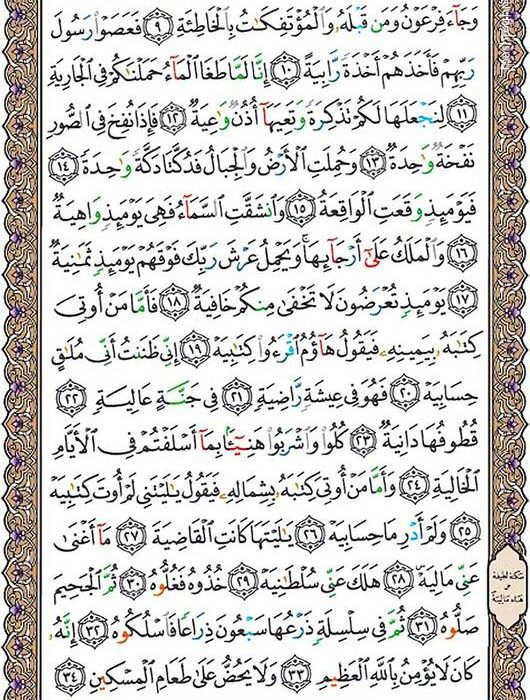 وَجَآءَ فِرْعَوْنُ وَمَن قَبْلَهُۥ وَٱلْمُؤْتَفِكَٰتُ بِٱلْخَاطِئَةِ ٩ فَعَصَوْا۟ رَسُولَ
رَبِّهِمْ فَأَخَذَهُمْ أَخْذَةً رَّابِيَةً ١٠ إِنَّا لَمَّا طَغَا ٱلْمَآءُ حَمَلْنَٰكُمْ فِى ٱلْجَارِيَةِ
١١ لِنَجْعَلَهَا لَكُمْ تَذْكِرَةً وَتَعِيَهَآ أُذُنٌ وَٰعِيَةٌ ١٢ فَإِذَا نُفِخَ فِى ٱلصُّورِ
نَفْخَةٌ وَٰحِدَةٌ ١٣ وَحُمِلَتِ ٱلْأَرْضُ وَٱلْجِبَالُ فَدُكَّتَا دَكَّةً وَٰحِدَةً ١٤
فَيَوْمَئِذٍ وَقَعَتِ ٱلْوَاقِعَةُ ١٥ وَٱنشَقَّتِ ٱلسَّمَآءُ فَهِىَ يَوْمَئِذٍ وَاهِيَةٌ
١٦ وَٱلْمَلَكُ عَلَىٰٓ أَرْجَآئِهَا ۚ وَيَحْمِلُ عَرْشَ رَبِّكَ فَوْقَهُمْ يَوْمَئِذٍ ثَمَٰنِيَةٌ
١٧ يَوْمَئِذٍ تُعْرَضُونَ لَا تَخْفَىٰ مِنكُمْ خَافِيَةٌ ١٨ فَأَمَّا مَنْ أُوتِىَ
كِتَٰبَهُۥ بِيَمِينِهِۦ فَيَقُولُ هَآؤُمُ ٱقْرَءُوا۟ كِتَٰبِيَهْ ١٩ إِنِّى ظَنَنتُ أَنِّى مُلَٰقٍ
حِسَابِيَهْ ٢٠ فَهُوَ فِى عِيشَةٍ رَّاضِيَةٍ ٢١ فِى جَنَّةٍ عَالِيَةٍ ٢٢
قُطُوفُهَا دَانِيَةٌ ٢٣ كُلُوا۟ وَٱشْرَبُوا۟ هَنِيٓـًٔۢا بِمَآ أَسْلَفْتُمْ فِى ٱلْأَيَّامِ
ٱلْخَالِيَةِ ٢٤ وَأَمَّا مَنْ أُوتِىَ كِتَٰبَهُۥ بِشِمَالِهِۦ فَيَقُولُ يَٰلَيْتَنِى لَمْ أُوتَ كِتَٰبِيَهْ
٢٥ وَلَمْ أَدْرِ مَا حِسَابِيَهْ ٢٦ يَٰلَيْتَهَا كَانَتِ ٱلْقَاضِيَةَ ٢٧ مَآ أَغْنَىٰ
عَنِّى مَالِيَهْ ۜ ٢٨ هَلَكَ عَنِّى سُلْطَٰنِيَهْ ٢٩ خُذُوهُ فَغُلُّوهُ ٣٠ ثُمَّ ٱلْجَحِيمَ
صَلُّوهُ ٣١ ثُمَّ فِى سِلْسِلَةٍ ذَرْعُهَا سَبْعُونَ ذِرَاعًا فَٱسْلُكُوهُ ٣٢ إِنَّهُۥ
كَانَ لَا يُؤْمِنُ بِٱللَّهِ ٱلْعَظِيمِ ٣٣ وَلَا يَحُضُّ عَلَىٰ طَعَامِ ٱلْمِسْكِينِ ٣٤
سكتة لطيفة
هاء ماليه